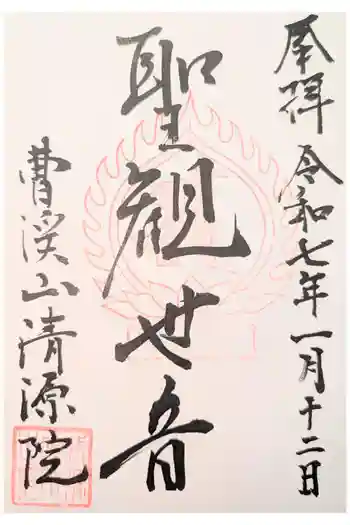 奉拝 令和七年一月十二日
聖観世音
曹渓山清源院